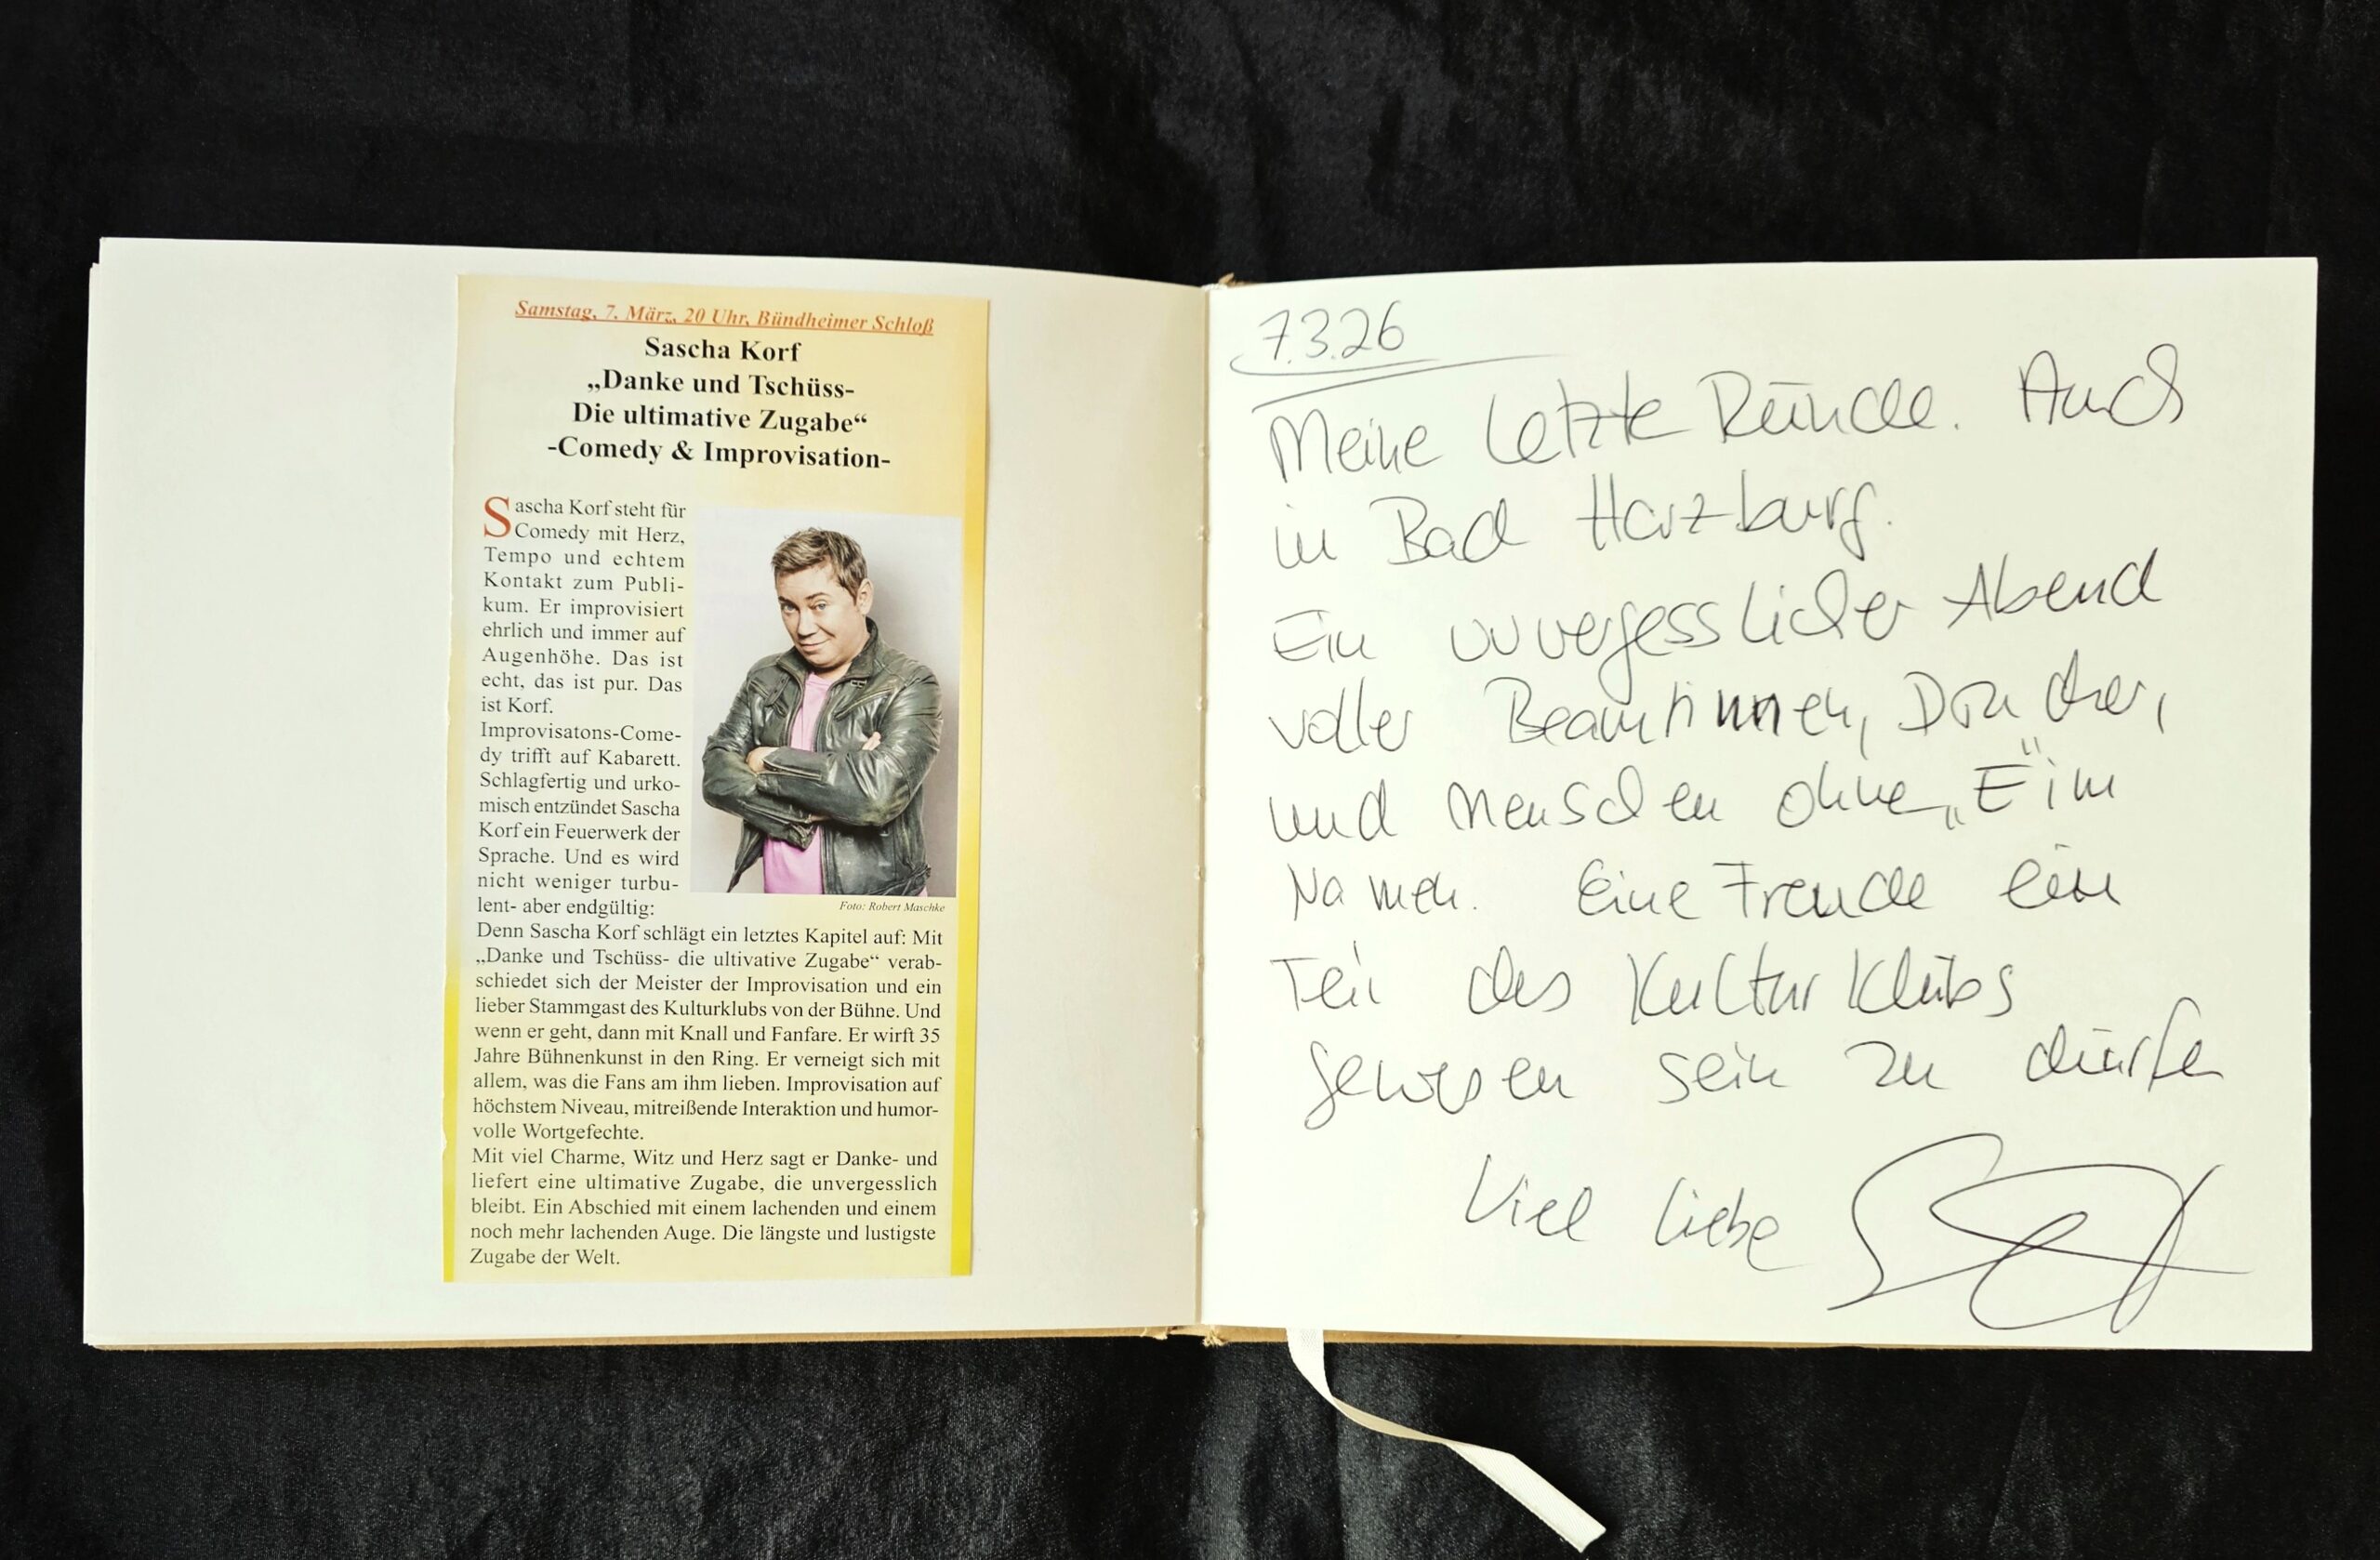 Samstag, 7. März, 20 Uhr, Bündheimer Schloß
Sascha Korf
„Danke und Tschüss-
Die ultimative Zugabe“
-Comedy & Improvisation-
Sascha Korf steht für
Comedy mit Herz,
Tempo und echtem
Kontakt zum Publi-
kum. Er improvisiert
ehrlich und immer auf
Augenhöhe. Das ist
echt, das ist pur. Das
ist Korf.
Improvisatons-Come-
dy trifft auf Kabarett.
Schlagfertig und urko-
misch entzündet Sascha
Korf ein Feuerwerk der
Sprache. Und es wird
nicht weniger turbu-
lent- aber endgültig:
Foto: Robert Maschke
Denn Sascha Korf schlägt ein letztes Kapitel auf: Mit
„Danke und Tschüss- die ultivative Zugabe“ verab-
schiedet sich der Meister der Improvisation und ein
lieber Stammgast des Kulturklubs von der Bühne. Und
wenn er geht, dann mit Knall und Fanfare. Er wirft 35
Jahre Bühnenkunst in den Ring. Er verneigt sich mit
allem, was die Fans am ihm lieben. Improvisation auf
höchstem Niveau, mitreißende Interaktion und humor-
volle Wortgefechte.
Mit viel Charme, Witz und Herz sagt er Danke- und
liefert eine ultimative Zugabe, die unvergesslich
bleibt. Ein Abschied mit einem lachenden und einem
noch mehr lachenden Auge. Die längste und lustigste
Zugabe der Welt.
7.3.26
Meine letzte Runde. Auch
in Bad Harzburg.
Ein unvergesslicher Abend
voller Beamtinnen,
und Menschen ohne „E“ im
Namen. Eine Freude ein
Teil des Kultur Klubs
gewesen sein zu dürfen
Viel Liebe